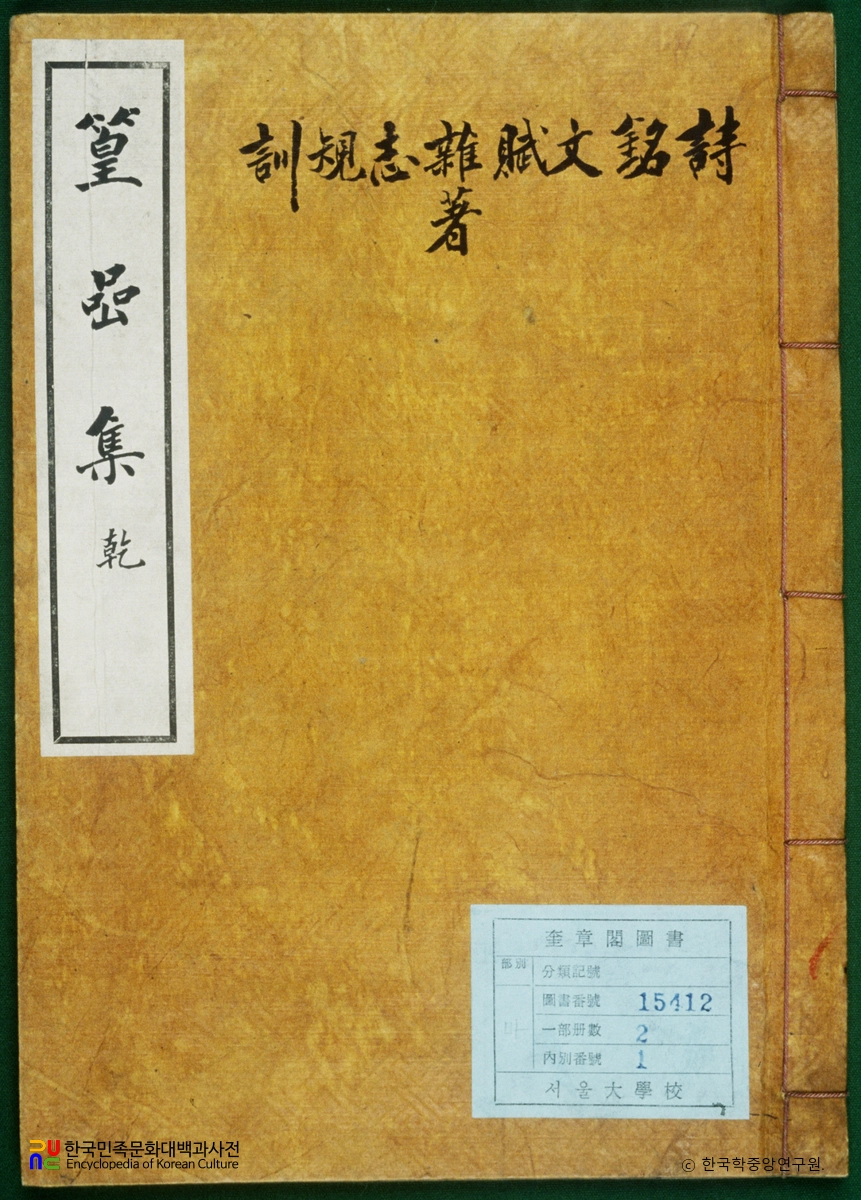 詩銘文賦雜著志規訓
篁嵒集 乾
奎章閣圖書
部別
分類記號
圖書番號 15412
一部册數 2
內別番號 1
서울大學校
한국민족문화대백과사전
Encyclopedia of Korean Culture
© 한국학중앙연구원.